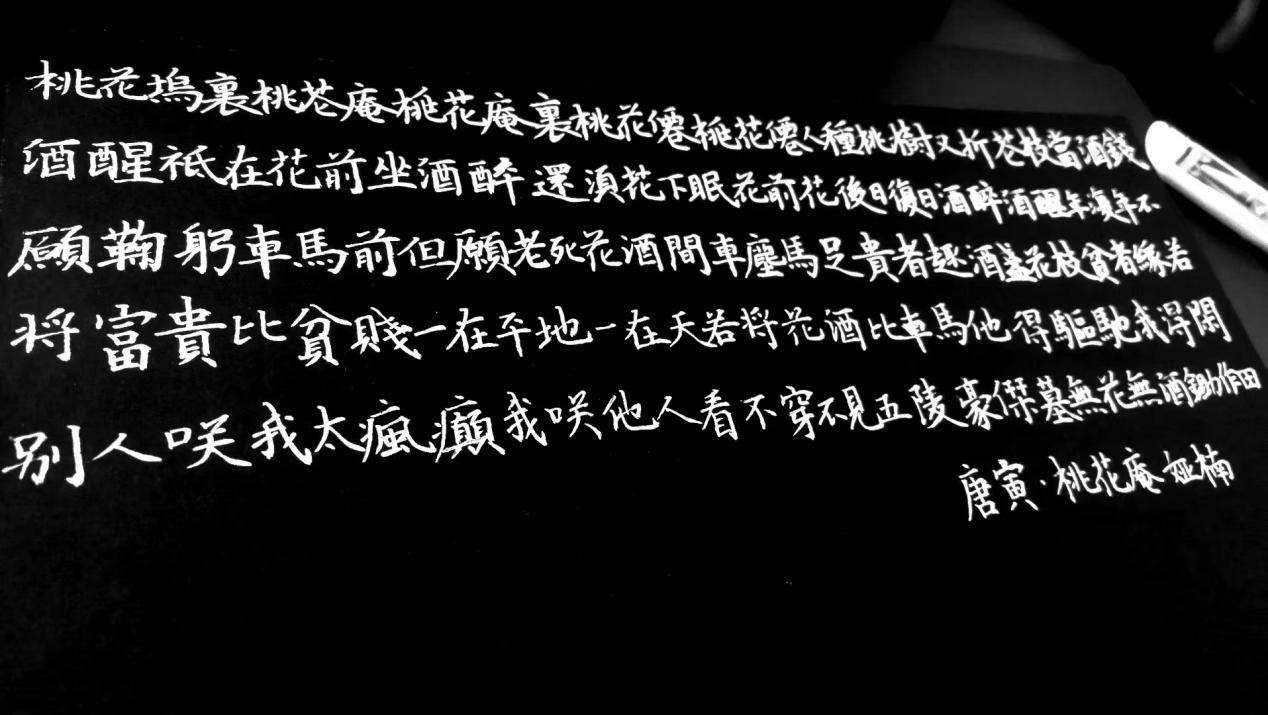 桃花塢裏桃花庵桃花庵裏桃花僊桃花僊人種桃樹又折花枝當酒錢
酒醒祗在花前坐酒醉還須花下眠花前花後日復日酒醉酒醒年復年不
願鞠躬車馬前但願老死花酒間車塵馬足貴者趣酒盞花枝貧者緣若
将富貴比貧賤一在平地一在天若将花酒比車馬他得驅馳我得閑
別人咲我太瘋癲我咲他人看不穿不見五陵豪傑墓無花無酒鋤作田
唐寅·桃花庵 娅楠